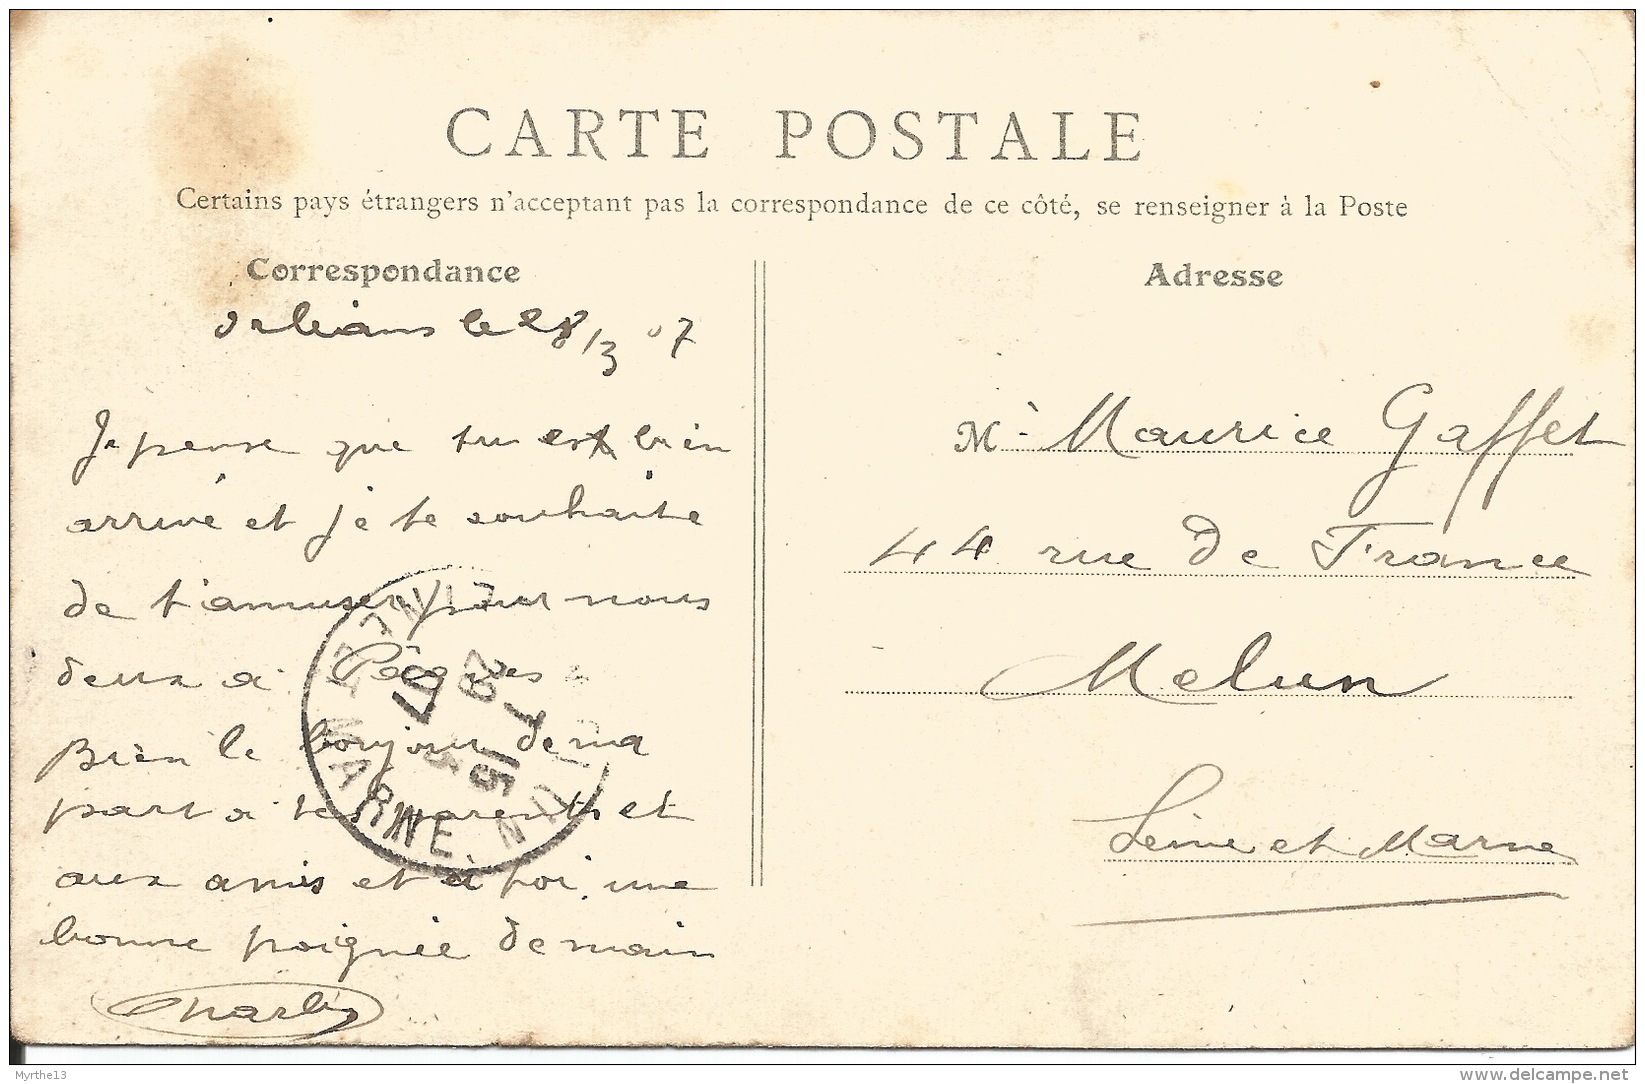 CARTE POSTALE
Certains pays étrangers n'acceptant pas la correspondance de ce côté, se renseigner à la Poste
Correspondance
Orléans le 28/3 07
Je pense que tu es bien
arrivé et je te souhaite
de t'amuser pour nous
deux à Pâques
Bien le bonjour de ma
part à tes parents et
aux amis et à toi une
bonne poignée de main
Charles
Adresse
M. Maurice Gaffet
44 rue de France
Melun
Seine et Marne
SEINE ET MARNE
MELUN
15
07
Myrthe13
delcampe.net